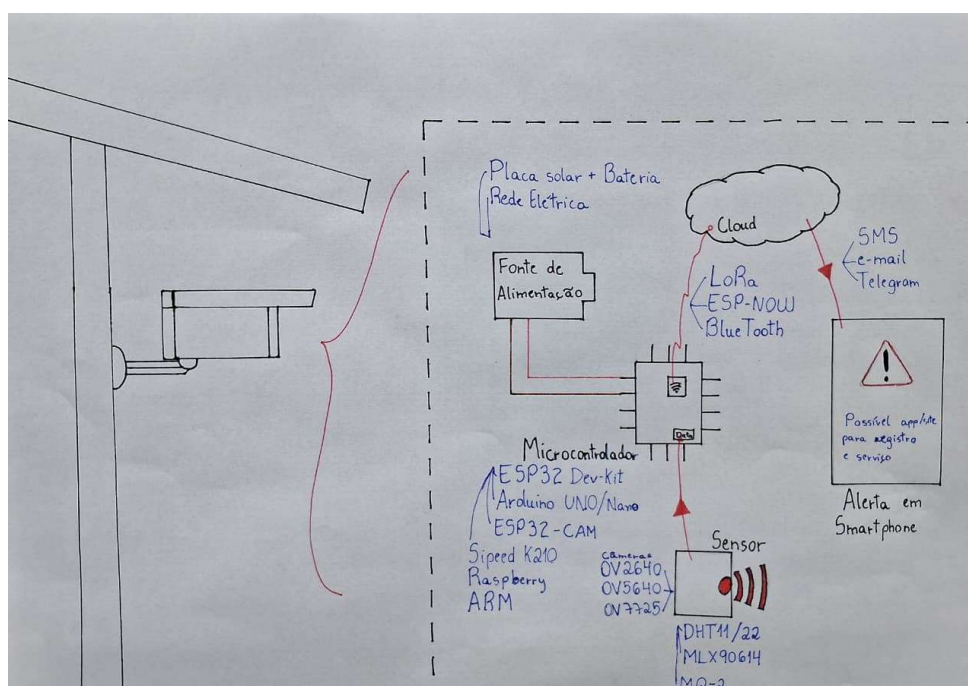 Placa solar + Bateria
Rede Elétrica
Fonte de
Alimentação
Cloud
LoRa
ESP-NOW
BlueTooth
SMS
e-mail
Telegram
!
Possível app/site
para registro
e serviso
Alerta em
Smartphone
Data
Microcontrolador
ESP32 Dev-Kit
Arduino UNO/Nano
ESP32-CAM
Sipeed K210
Raspberry
ARM
Sensor
cameras
OV2640
OV5640
OV7725
DHT11/22
MLX90614
MQ-2